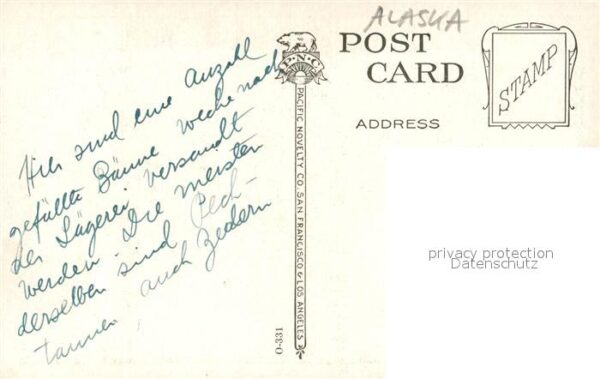 Hier sind eine Anzahl
gefällte Bäume welche nach
der Sägerei versandt
werden. Die meisten
derselben sind Pech-
tannen auch Zedern
ALASKA
POST CARD
ADDRESS
STAMP
P.N.C.
PACIFIC NOVELTY CO. SAN FRANCISCO & LOS ANGELES
O-331
privacy protection
Datenschutz